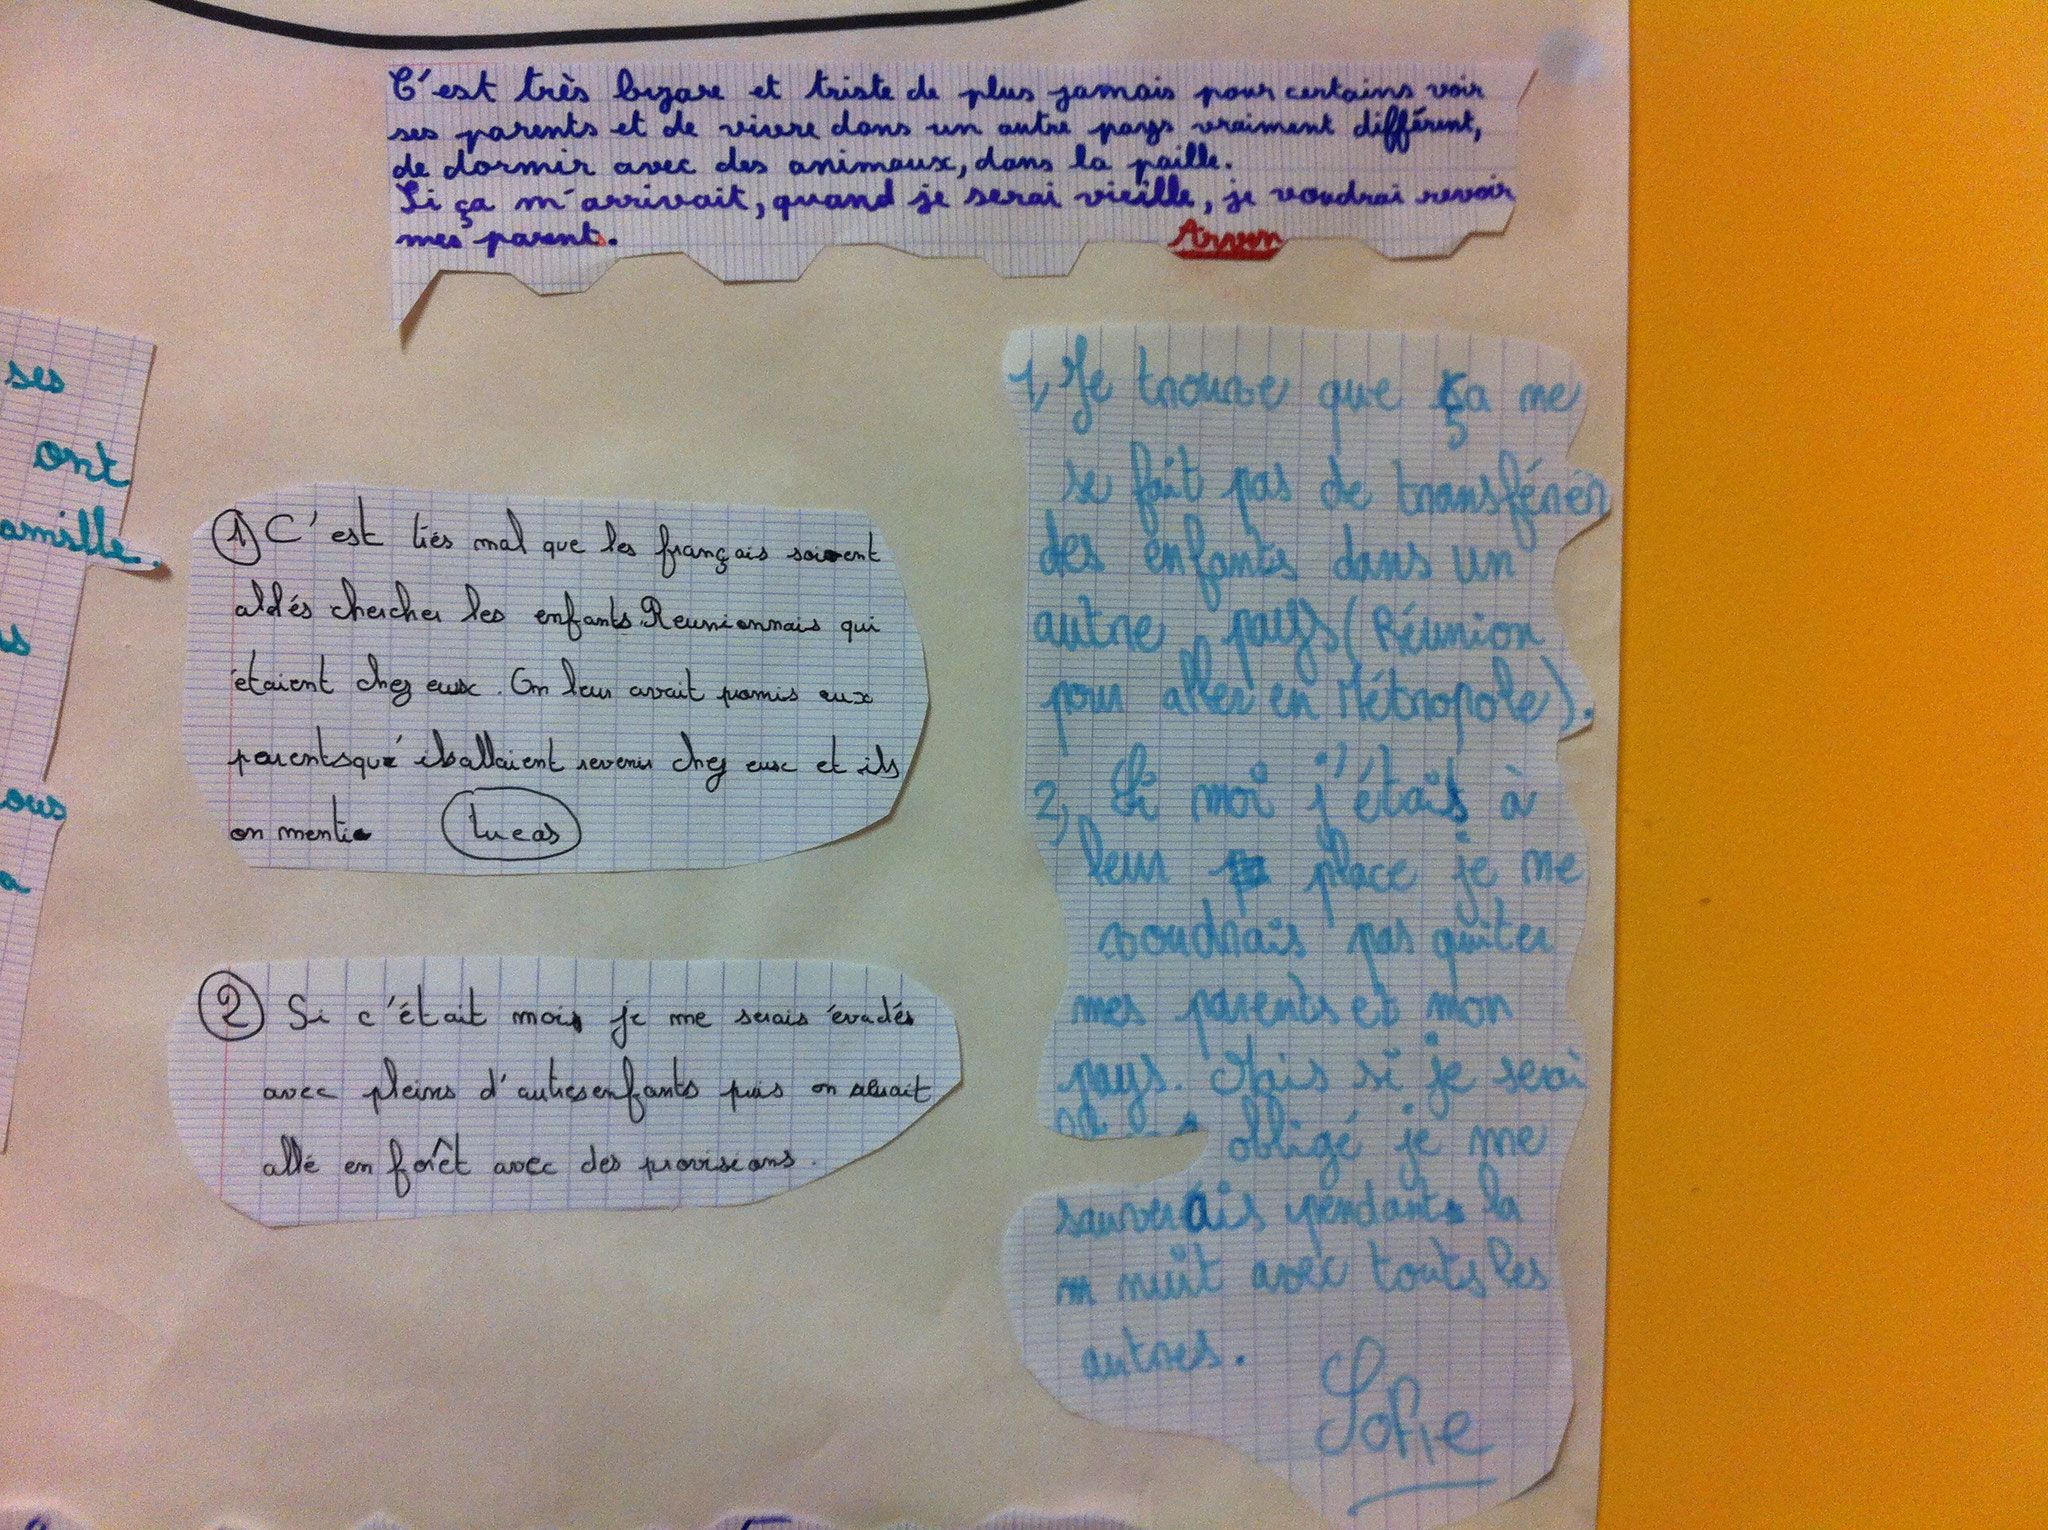 C'est très bizare et triste de plus jamais pour certains voir
ses parents et de vivre dans un autre pays vraiment différent,
de dormir avec des animaux, dans la paille.
Si ça m'arrivait, quand je serai vieille, je voudrai revoir
mes parents.
Arwen
ses
ont
amille.
s
ous
a
1) C'est trés mal que les français soient
aldés chercher les enfants Reunionnais qui
étaient chez eux. On leur avait promis aux
parents que ils allaient revenir chez eux et ils
on menti
Lucas
2) Si c'était moi, je me serais évadés
avec pleins d'autres enfants puis on aurait
allé en forêt avec des provisions.
1, Je trouve que ça ne
se fait pas de transférer
des enfants dans un
autre pays (Réunion
pour aller en Métropole).
2, Si moi j'étais à
leur place je ne
voudrais pas quiter
mes parents et mon
pays. Mais si je serai
obligé je me
sauverais pendant la
nuit avec touts les
autres.
Sofie